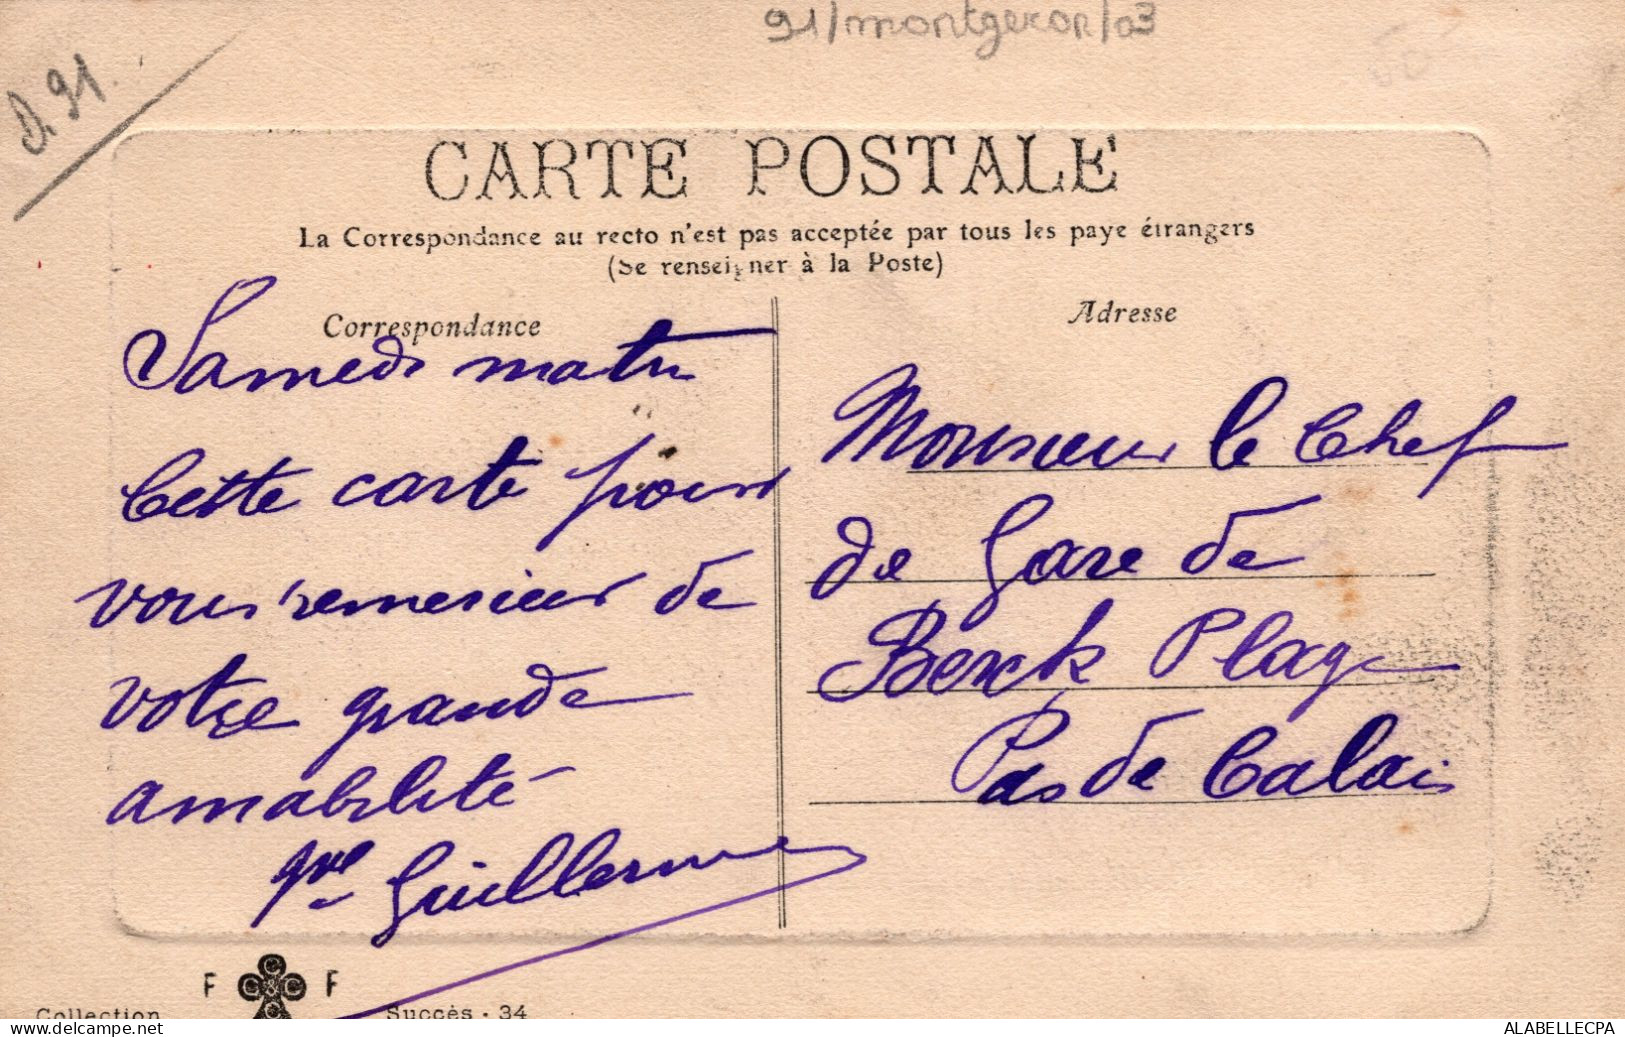 91/montgeron/03
D. 91.
CARTE POSTALE
La Correspondance au recto n'est pas acceptée par tous les paye étrangers
(Se renseigner à la Poste)
Correspondance
Samedi matin
Cette carte pour
vous remercier de
votre grande
amabilité
Guillerme
Adresse
Monsieur le Chef
de Gare de
Berck Plage
Pas de Calais
F C C & C C F
Collection
Succès - 34
delcampe.net
ALABELLECPA